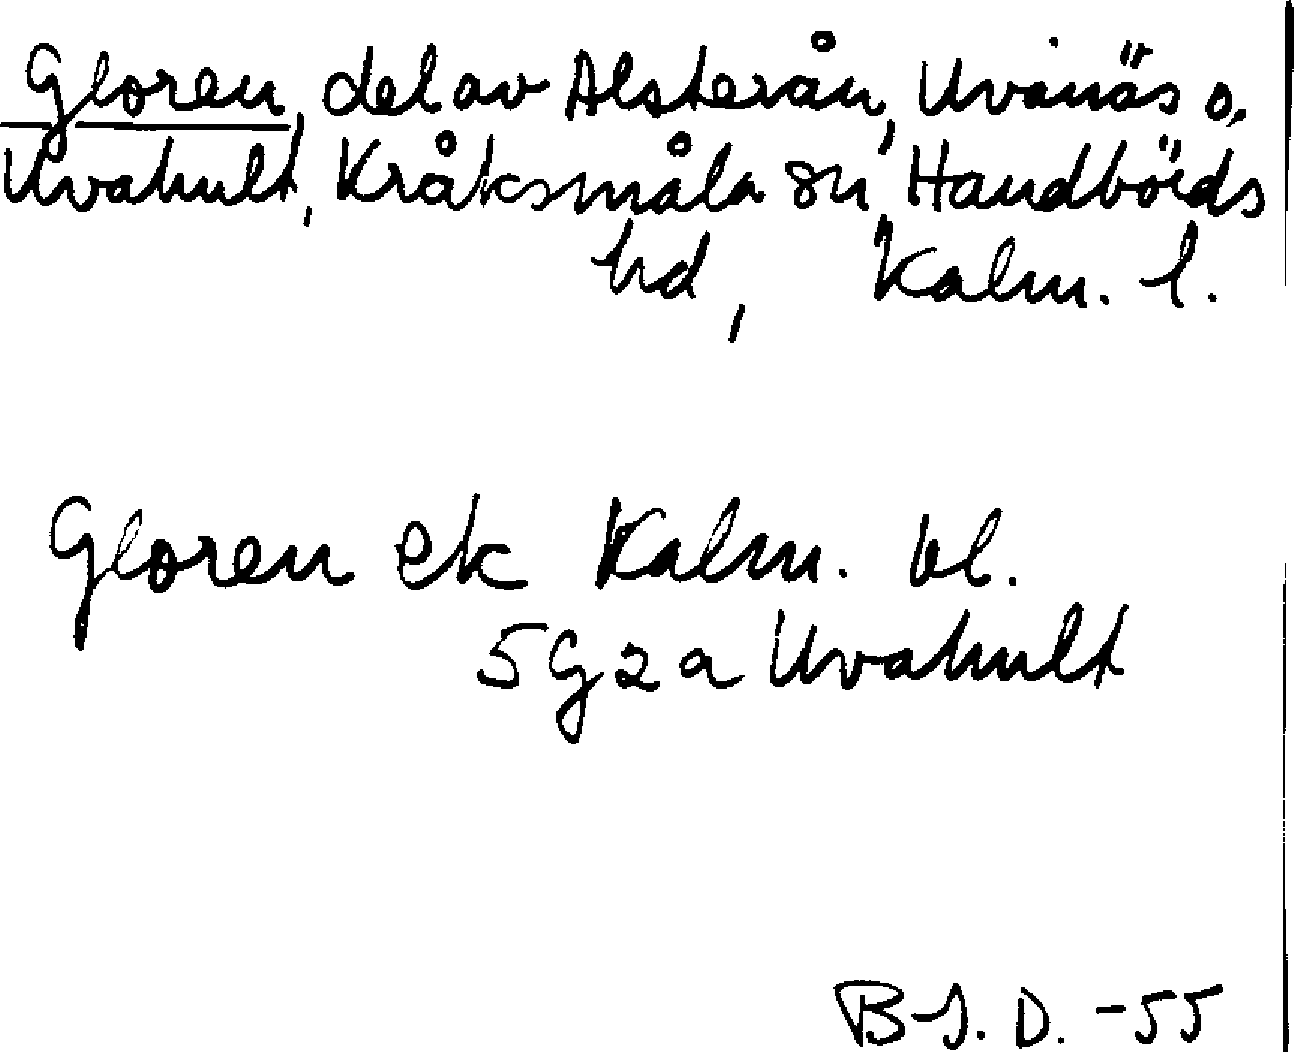 Gloren, del av Alsterån, Uvanäs o.
Uvahult, Kråksmåla sn, Handbörds
hd, Kalm. l.
Gloren ek Kalm. bl.
5 G 2 a Uvahult
B-J. D. -55